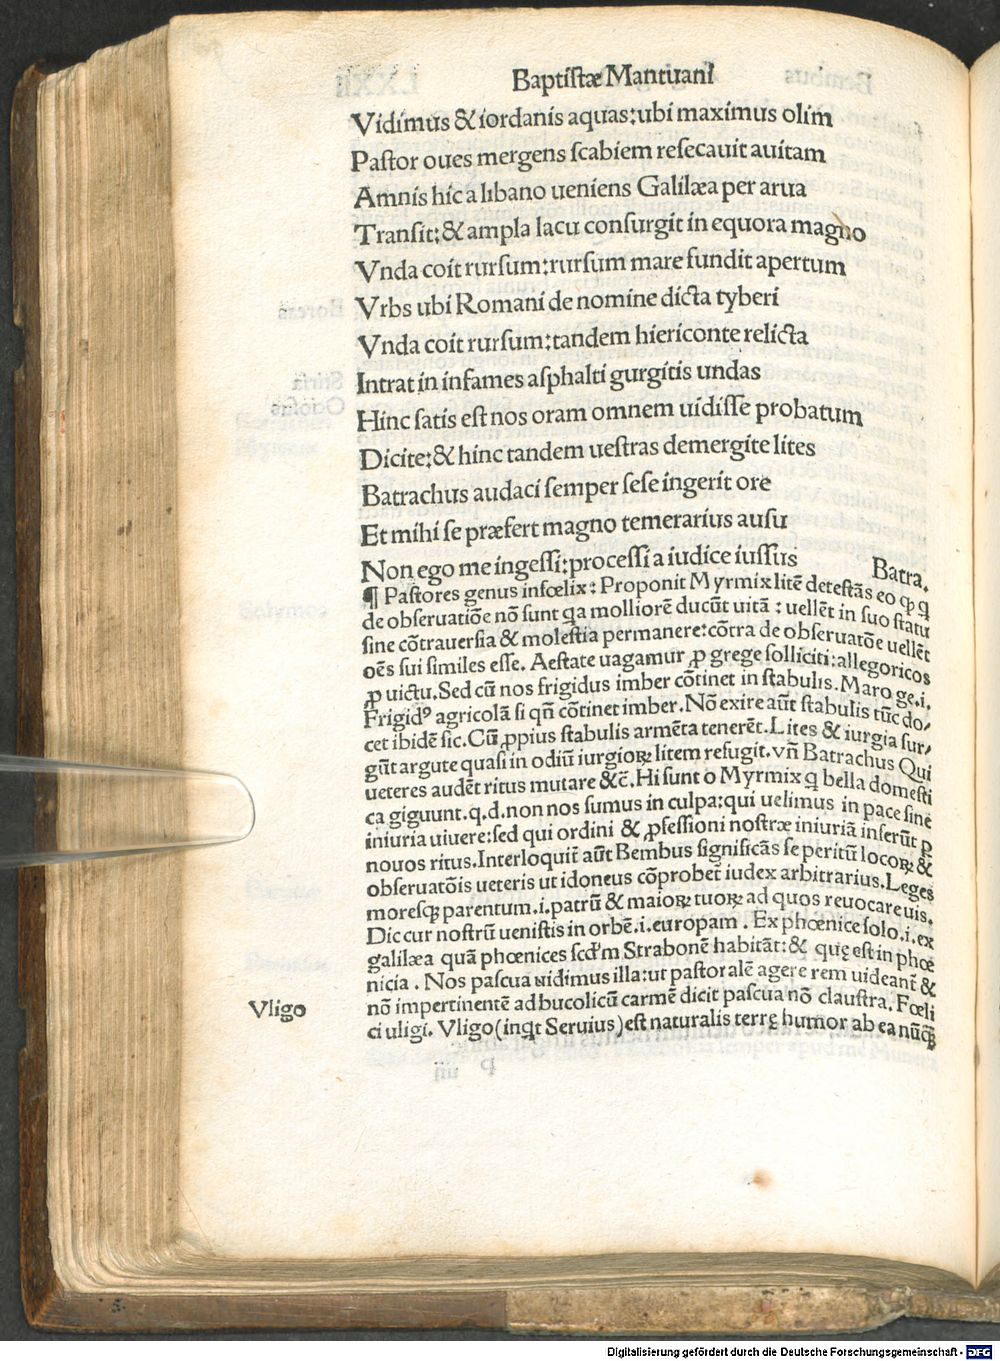 Baptistæ Mantuani
Vidimus & iordanis aquas: ubi maximus olim
Pastor oues mergens scabiem resecauit auitam
Amnis hic a libano ueniens Galilæa per arua
Transit: & ampla lacu consurgit in equora magno
Vnda coit rursum: rursum mare fundit apertum
Vrbs ubi Romani de nomine dicta tyberi
Vnda coit rursum: tandem hiericonte relicta
Intrat in infames asphalti gurgitis undas
Hinc satis est nos oram omnem uidisse probatum
Dicite: & hinc tandem uestras demergite lites
Batrachus audaci semper sese ingerit ore
Et mihi se præfert magno temerarius ausu
Non ego me ingessi: processi a iudice iussus Batra.
¶ Pastores genus infœlix: Proponit Myrmix litē detestās eo ꝙ q
de obseruatiōe nō sunt q̄a molliorē ducūt uitā: uellēt in suo statu
sine cōtrauersia & molestia permanere: cōtra de obseruatōe uellēt
oēs sui similes esse. Aestate uagamur ꝓ grege solliciti: allegoricos
ꝓ uictu. Sed cū nos frigidus imber cōtinet in stabulis. Maro ge.i.
Frigidꝰ agricolā si qn̄ cōtinet imber. Nō exire aūt stabulis tūc do/
cet ibidē sic. Cū ꝓpius stabulis armēta tenerēt. Lites & iurgia sur/
gūt argute quasi in odiū iurgioꝝ litem refugit. vn̄ Batrachus Qui
ueteres audēt ritus mutare &c̄. Hi sunt o Myrmix q̄ bella domesti
ca giguunt. q.d. non nos sumus in culpa: qui uelimus in pace sine
iniuria uiuere: sed qui ordini & ꝓfessioni nostræ iniuriā inferūt ꝑ
nouos ritus. Interloquit̄ aūt Bembus significās se peritū locoꝝ &
obseruatōis ueteris ut idoneus cōprobet̄ iudex arbitrarius. Leges
moresqꝫ parentum.i. patrū & maioꝝ tuoꝝ ad quos reuocare uis.
Dic cur nostrū uenistis in orbē.i. europam. Ex phœnice solo.i. ex
galilæa quā phœnices scd'm Strabonē habitāt: & quę est in phœ
nicia. Nos pascua uidimus illa: ut pastoralē agere rem uideant̄ &
nō impertinentē ad bucolicū carmē dicit pascua nō claustra. Fœli
ci uligi. Vligo (inqt Seruius) est naturalis terrę humor ab ea nūqꝫ
Vligo
Digitalisierung gefördert durch die Deutsche Forschungsgemeinschaft - DFG